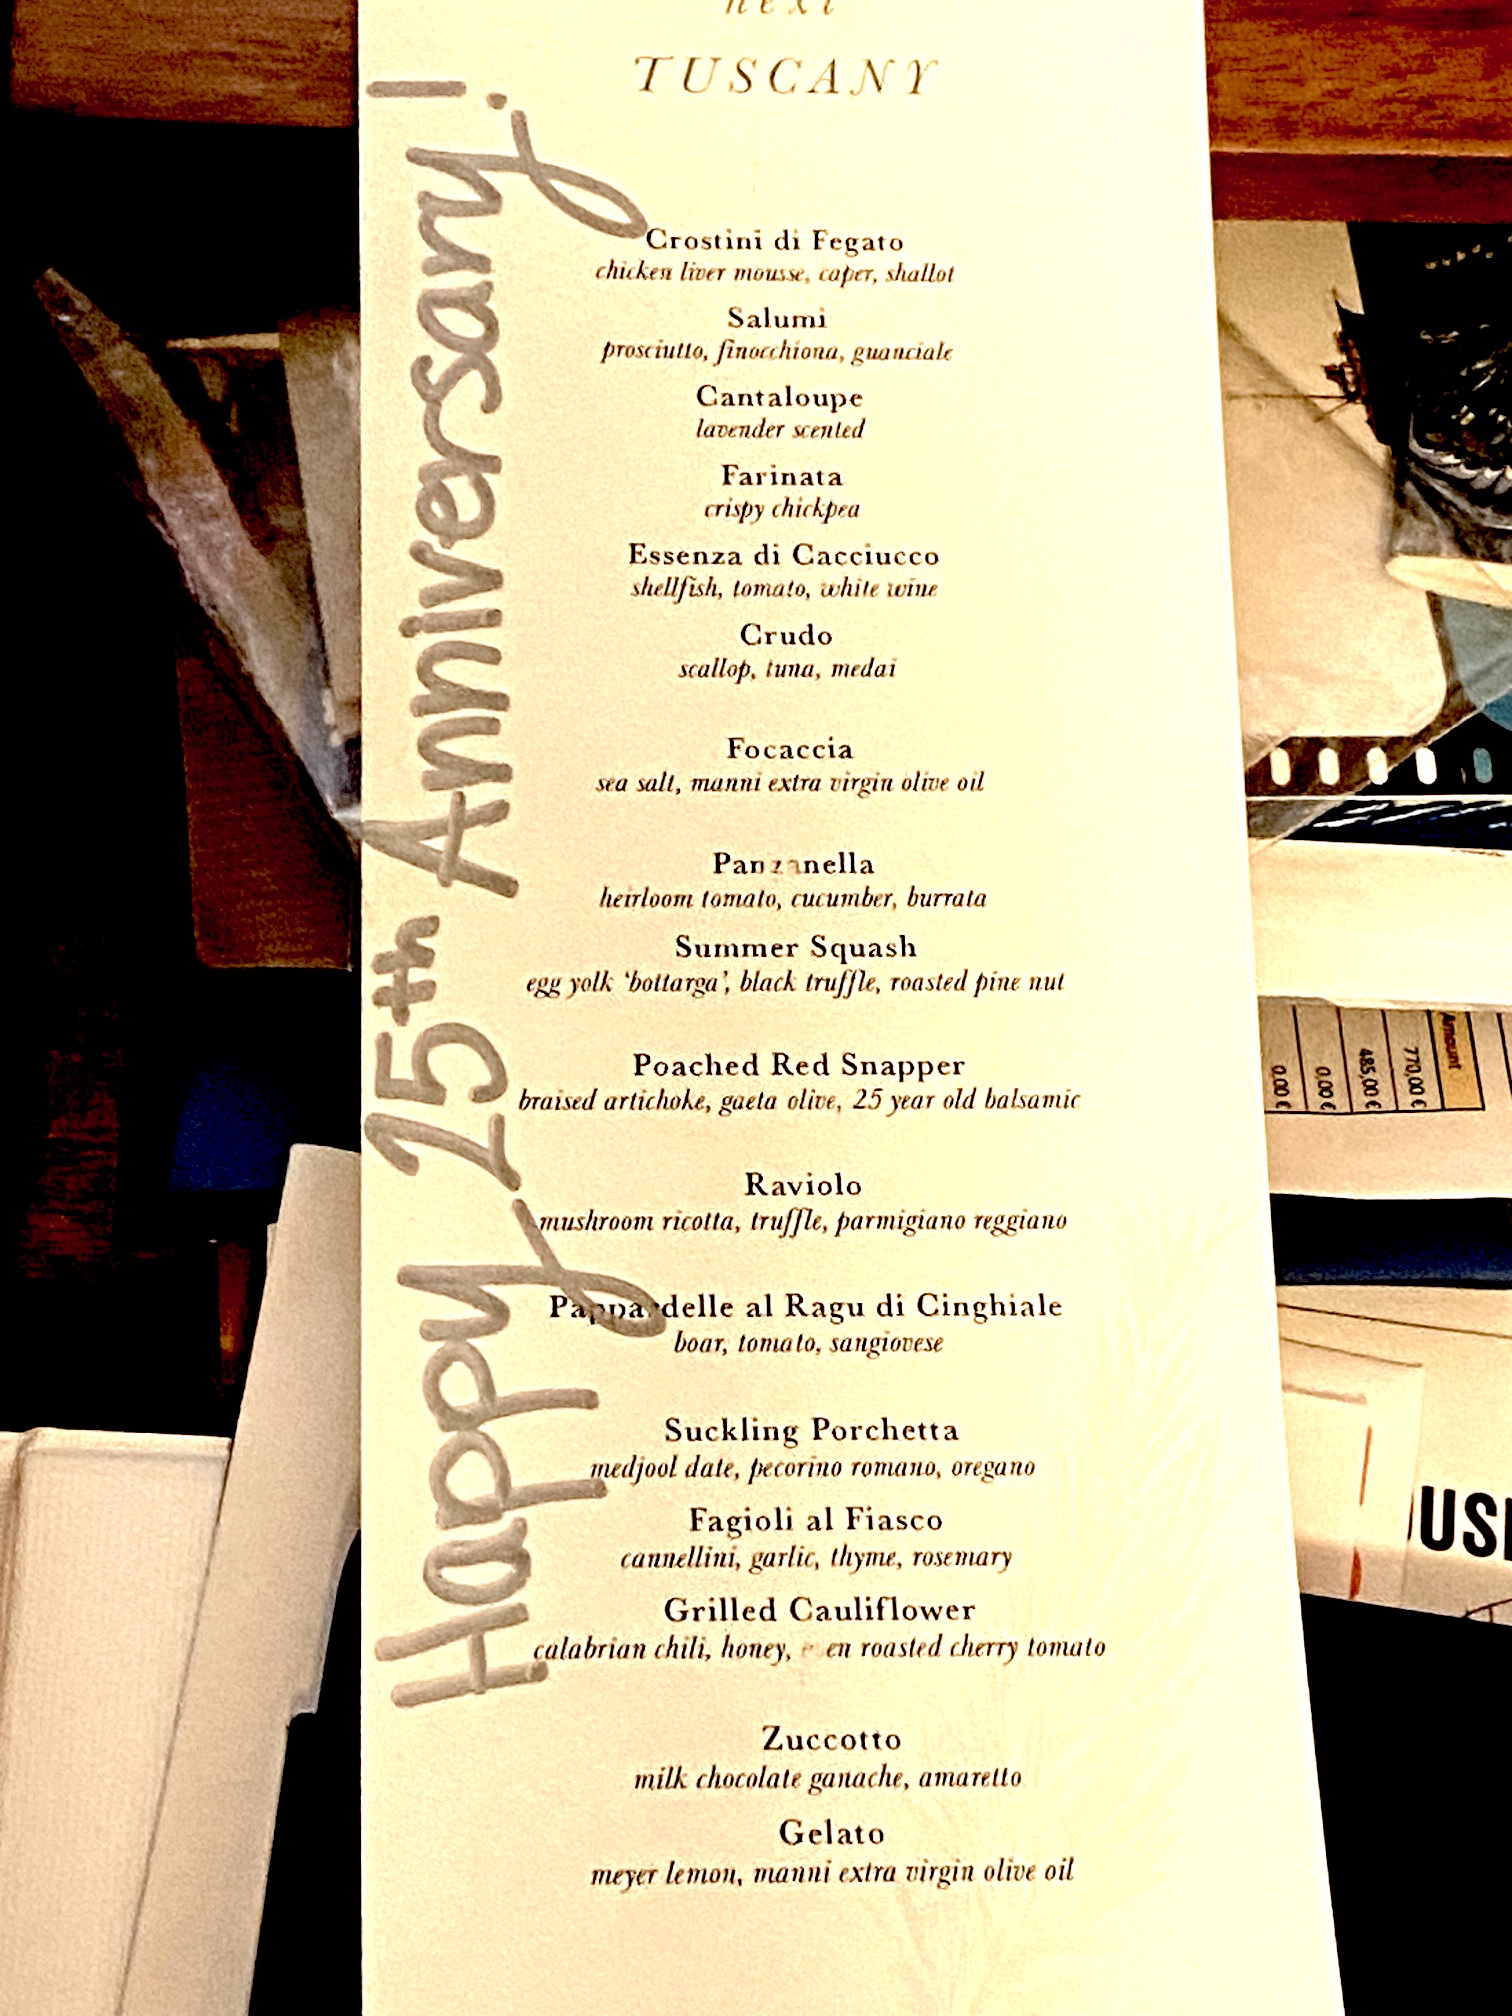 next
TUSCANY
Happy 25th Anniversary!
Crostini di Fegato
chicken liver mousse, caper, shallot
Salumi
prosciutto, finocchiona, guanciale
Cantaloupe
lavender scented
Farinata
crispy chickpea
Essenza di Cacciucco
shellfish, tomato, white wine
Crudo
scallop, tuna, medai
Focaccia
sea salt, manni extra virgin olive oil
Panzanella
heirloom tomato, cucumber, burrata
Summer Squash
egg yolk ‘bottarga’, black truffle, roasted pine nut
Poached Red Snapper
braised artichoke, gaeta olive, 25 year old balsamic
Raviolo
mushroom ricotta, truffle, parmigiano reggiano
Pappardelle al Ragu di Cinghiale
boar, tomato, sangiovese
Suckling Porchetta
medjool date, pecorino romano, oregano
Fagioli al Fiasco
cannellini, garlic, thyme, rosemary
Grilled Cauliflower
calabrian chili, honey, en roasted cherry tomato
Zuccotto
milk chocolate ganache, amaretto
Gelato
meyer lemon, manni extra virgin olive oil
Amount
770,00 €
485,00 €
0,00 €
0,00 €
USI